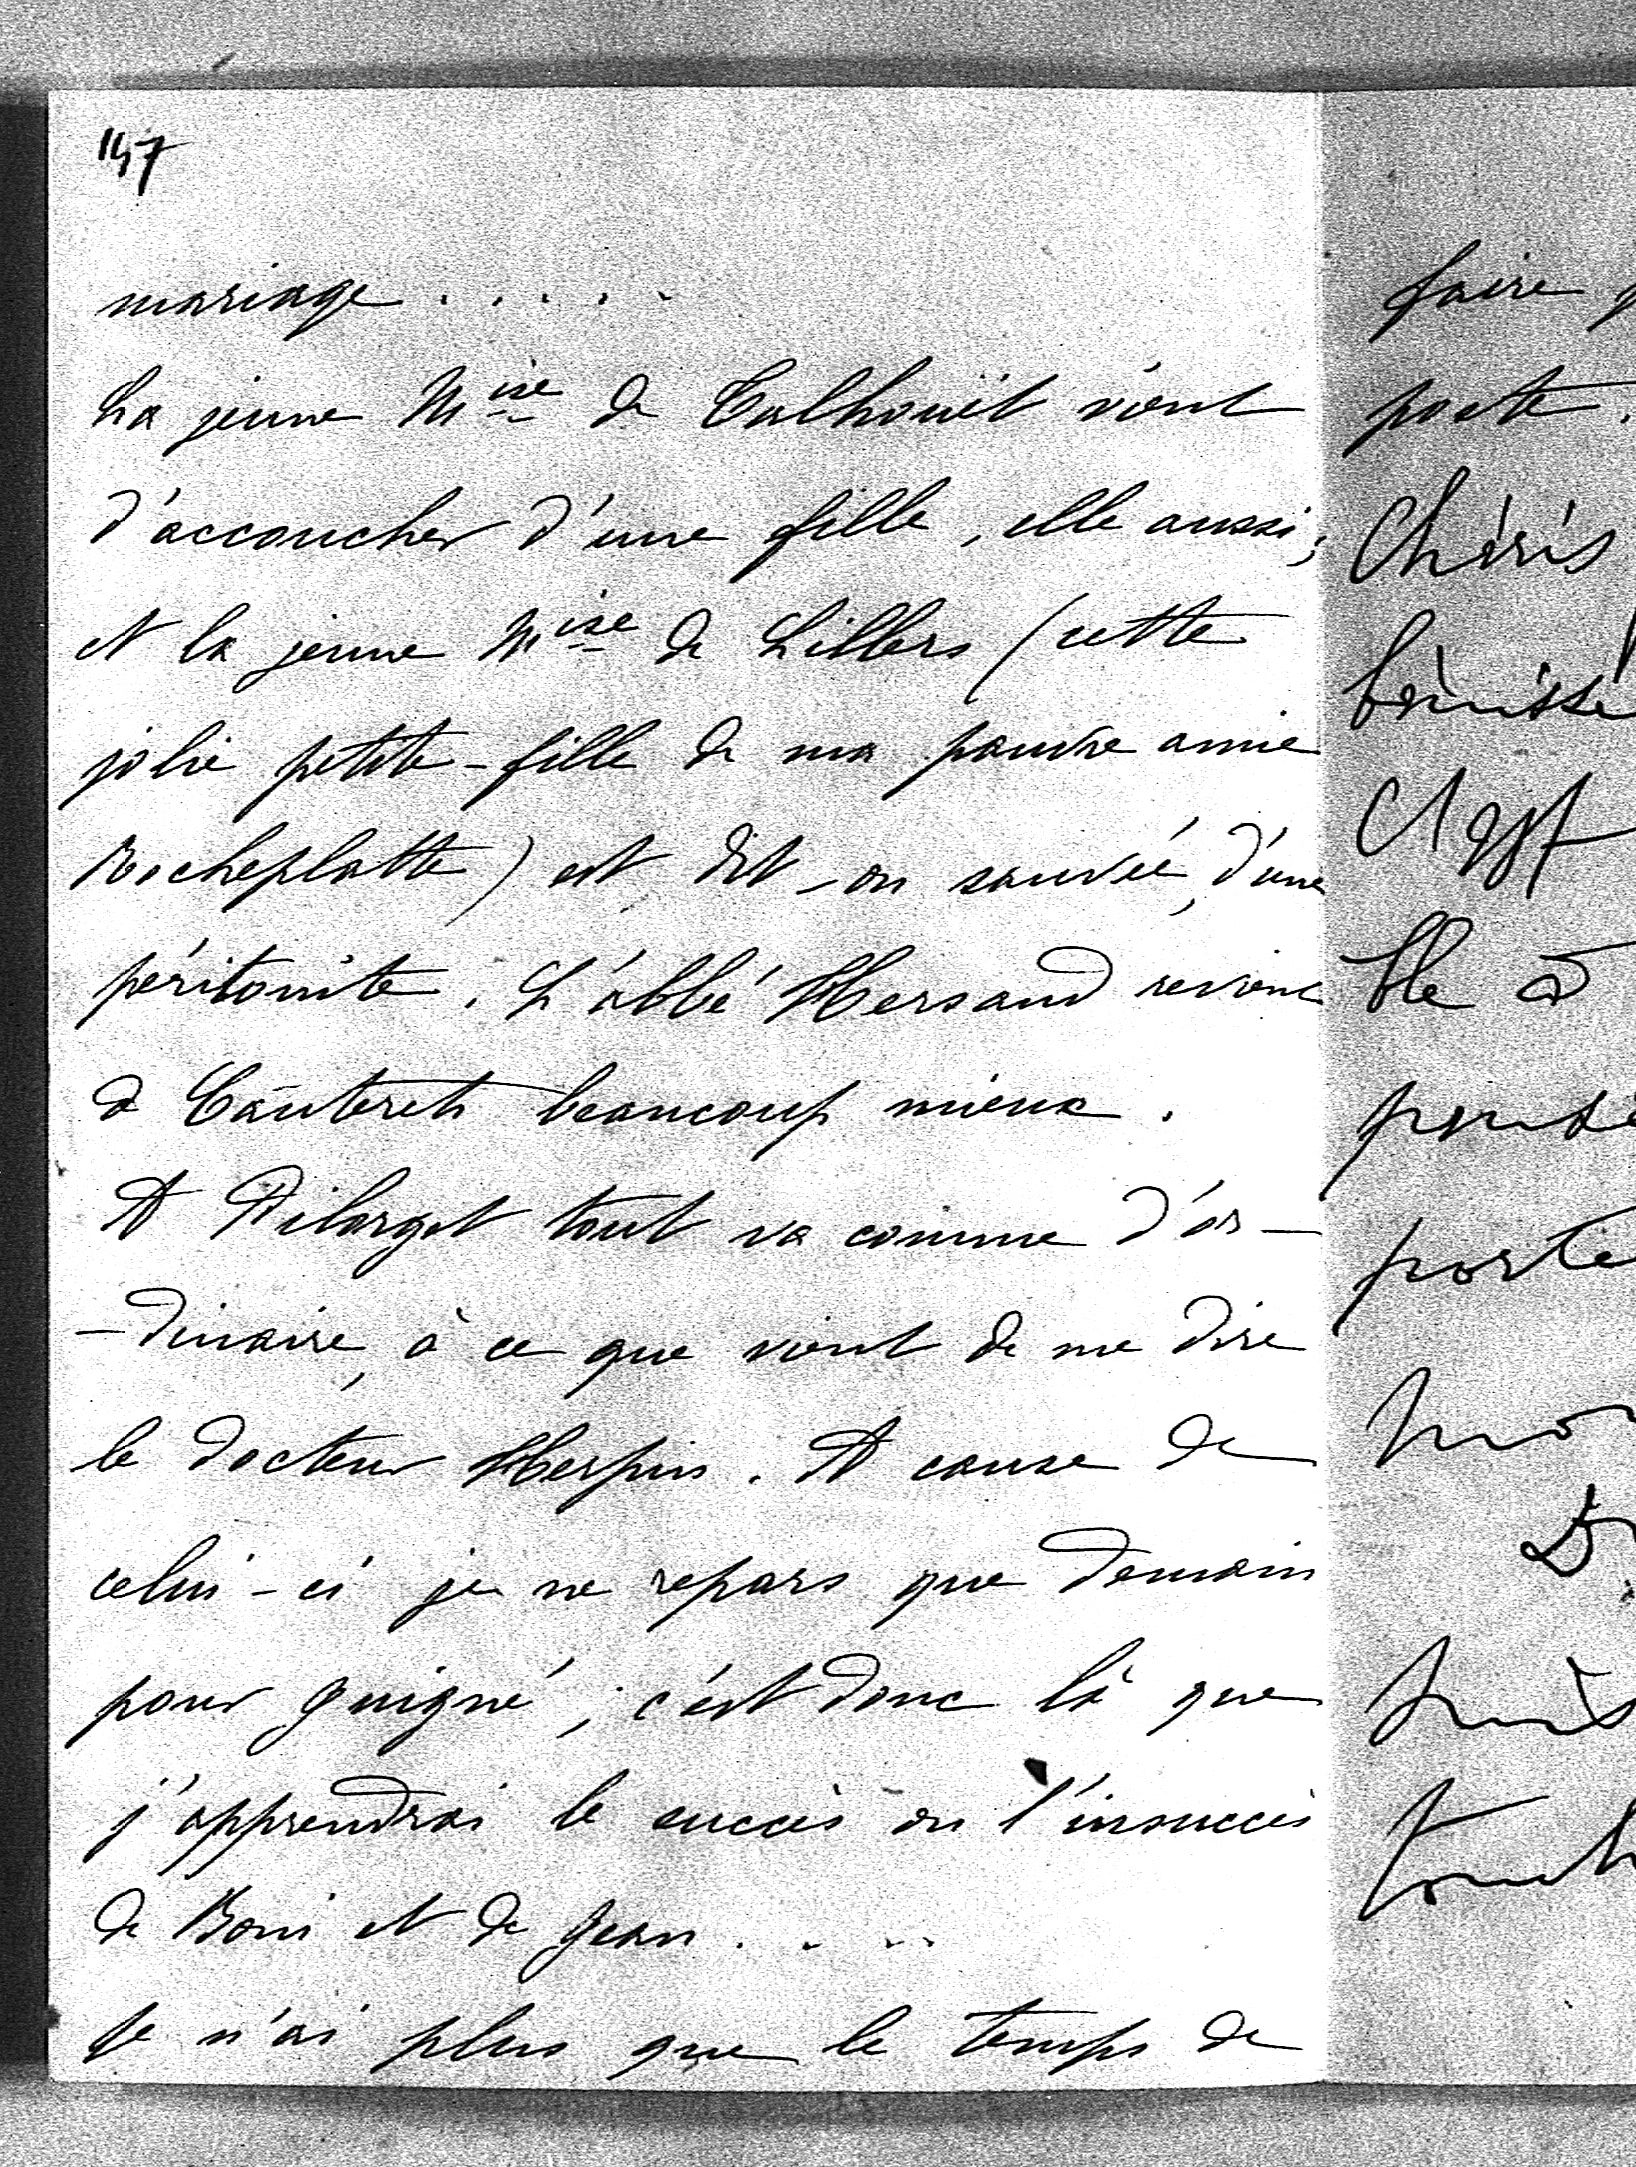 147
mariage . . . . .
La jeune Mise de Talhouët vient
d'accoucher d'une fille, elle aussi;
et la jeune Mise de Lillers (cette
jolie petite-fille de ma pauvre amie
Rocheplatte) est, dit-on sauvée, d'une
péritonite. L'abbé Hersand revient
de Cauterets beaucoup mieux.
A Pilorget tout va comme d'or-
-dinaire, à ce que vient de me dire
le docteur Herpin. A cause de
celui-ci je ne repars que demain
pour guigné; c'est donc là que
j'apprendrai le succès ou l'insuccès
de Boni et de Jean. . . .
Je n'ai plus que le temps de
faire
poste.
Chéris
ble à
porte